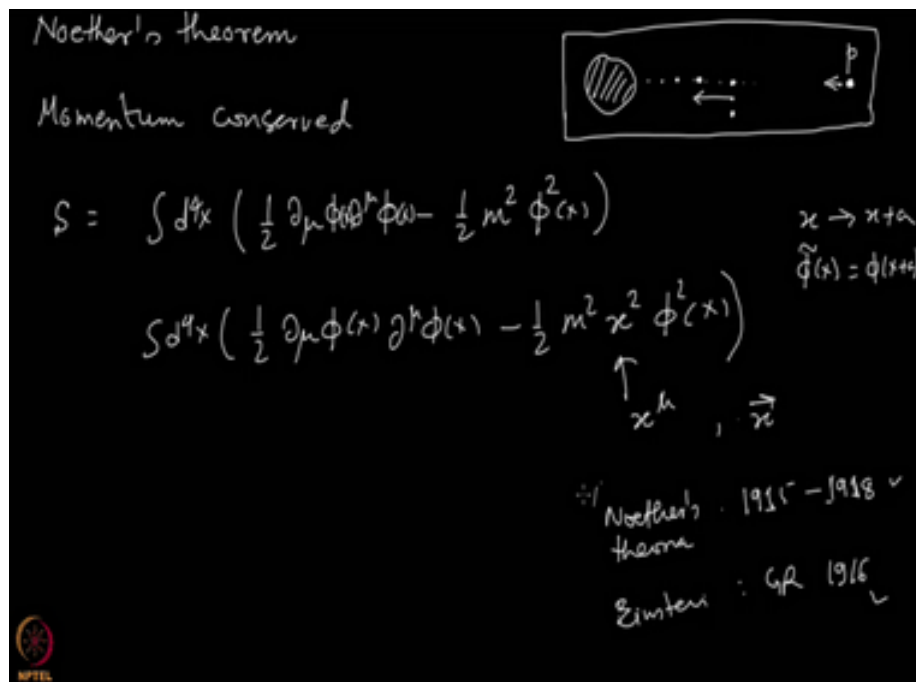 Noether's theorem
p
Momentum conserved
S = ∫d⁴x ( 1/2 ∂μ ϕ(x) ∂^μ ϕ(x) − 1/2 m² ϕ²(x) )
x → x+a
ϕ̃(x) = ϕ(x+a)
∫d⁴x ( 1/2 ∂μ ϕ(x) ∂^μ ϕ(x) − 1/2 m² x² ϕ²(x) )
↑
x^μ , x⃗
Noether's : 1915 − 1918 ✓
Einstein : GR 1916 ✓
NPTEL